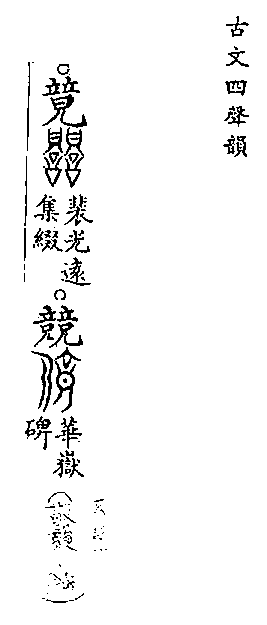 古文四聲韻
竟
裴光遠
集綴
競
華嶽
碑